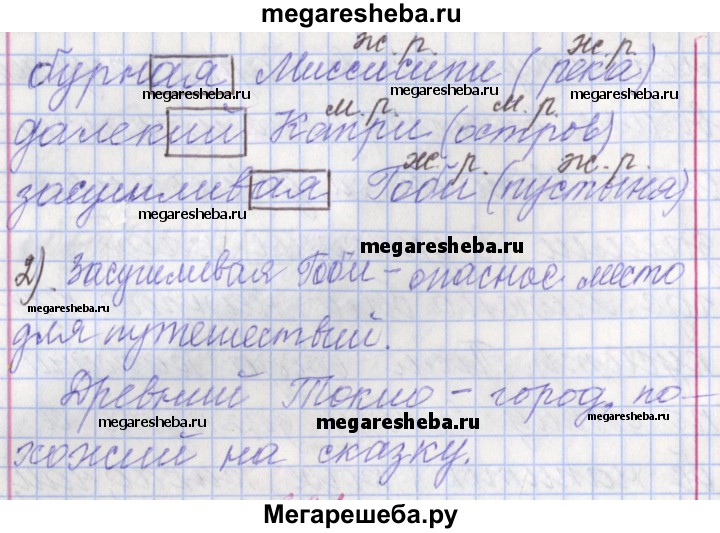 megaresheba.ru
ж. р. ж. р.
бурная Миссисипи (река)
megaresheba.ru megaresheba.ru
м. р. м. р.
далекий Капри (остров)
ж. р. ж. р.
засушливая Гоби (пустыня)
megaresheba.ru megaresheba.ru
megaresheba.ru
2). Засушливая Гоби – опасное место
megaresheba.ru megaresheba.ru
для путешествий.
Древний Токио – город, по-
megaresheba.ru megaresheba.ru megaresheba.ru
хожий на сказку.
megaresheba.ru megaresheba.ru
Мегарешеба.ру